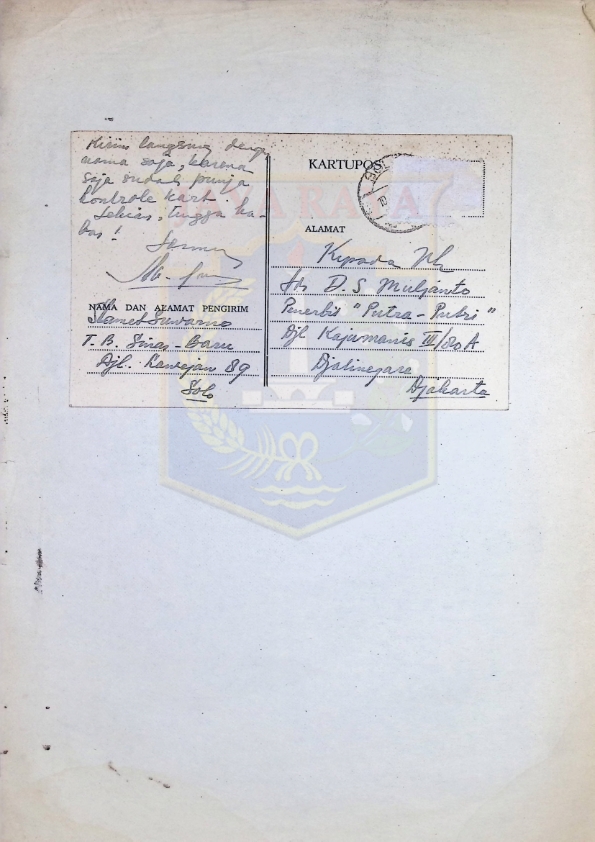 Kirim langsung dengan
nama saja, karena
saja sudah punja
kontrole kart.
Sekian, tunggu ka-
bar!
NAMA DAN ALAMAT PENGIRIM
Slamed Suwarno
T. B. Sinar - Baru
Djl. Lawejan 89
Solo
KARTUPOS
JAYA RAYA
ALAMAT
Kepada Yth
Sdr D. S. Muljanto
Penerbit "Putra - Putri"
Djl Kajumanis III/20A
Djatinegara
Djakarta